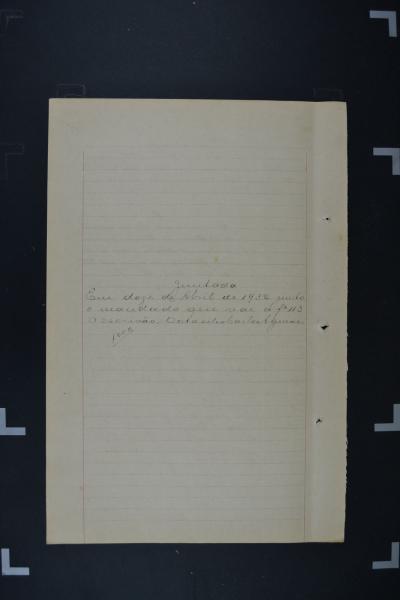 Juntada
Em doze de Abril de 1932 junto
o mandado que vae á fs 113
O escrivão